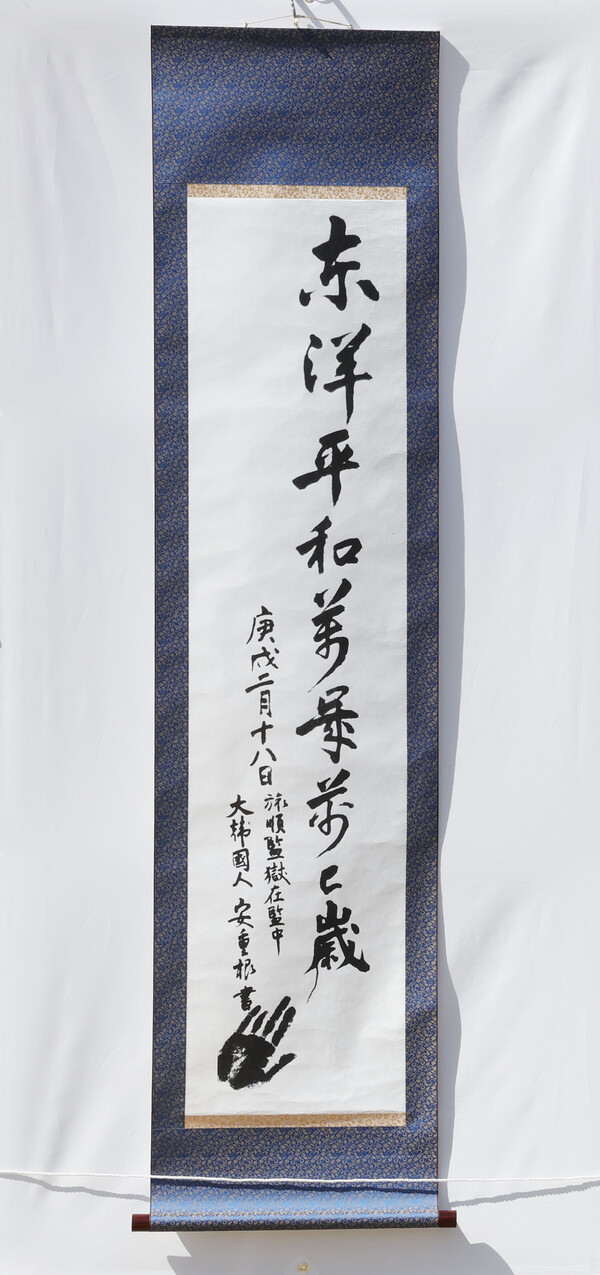 东洋平和萬歲萬〻歲
庚戌二月十八日
旅順監獄在監中
大韓國人 安重根 書